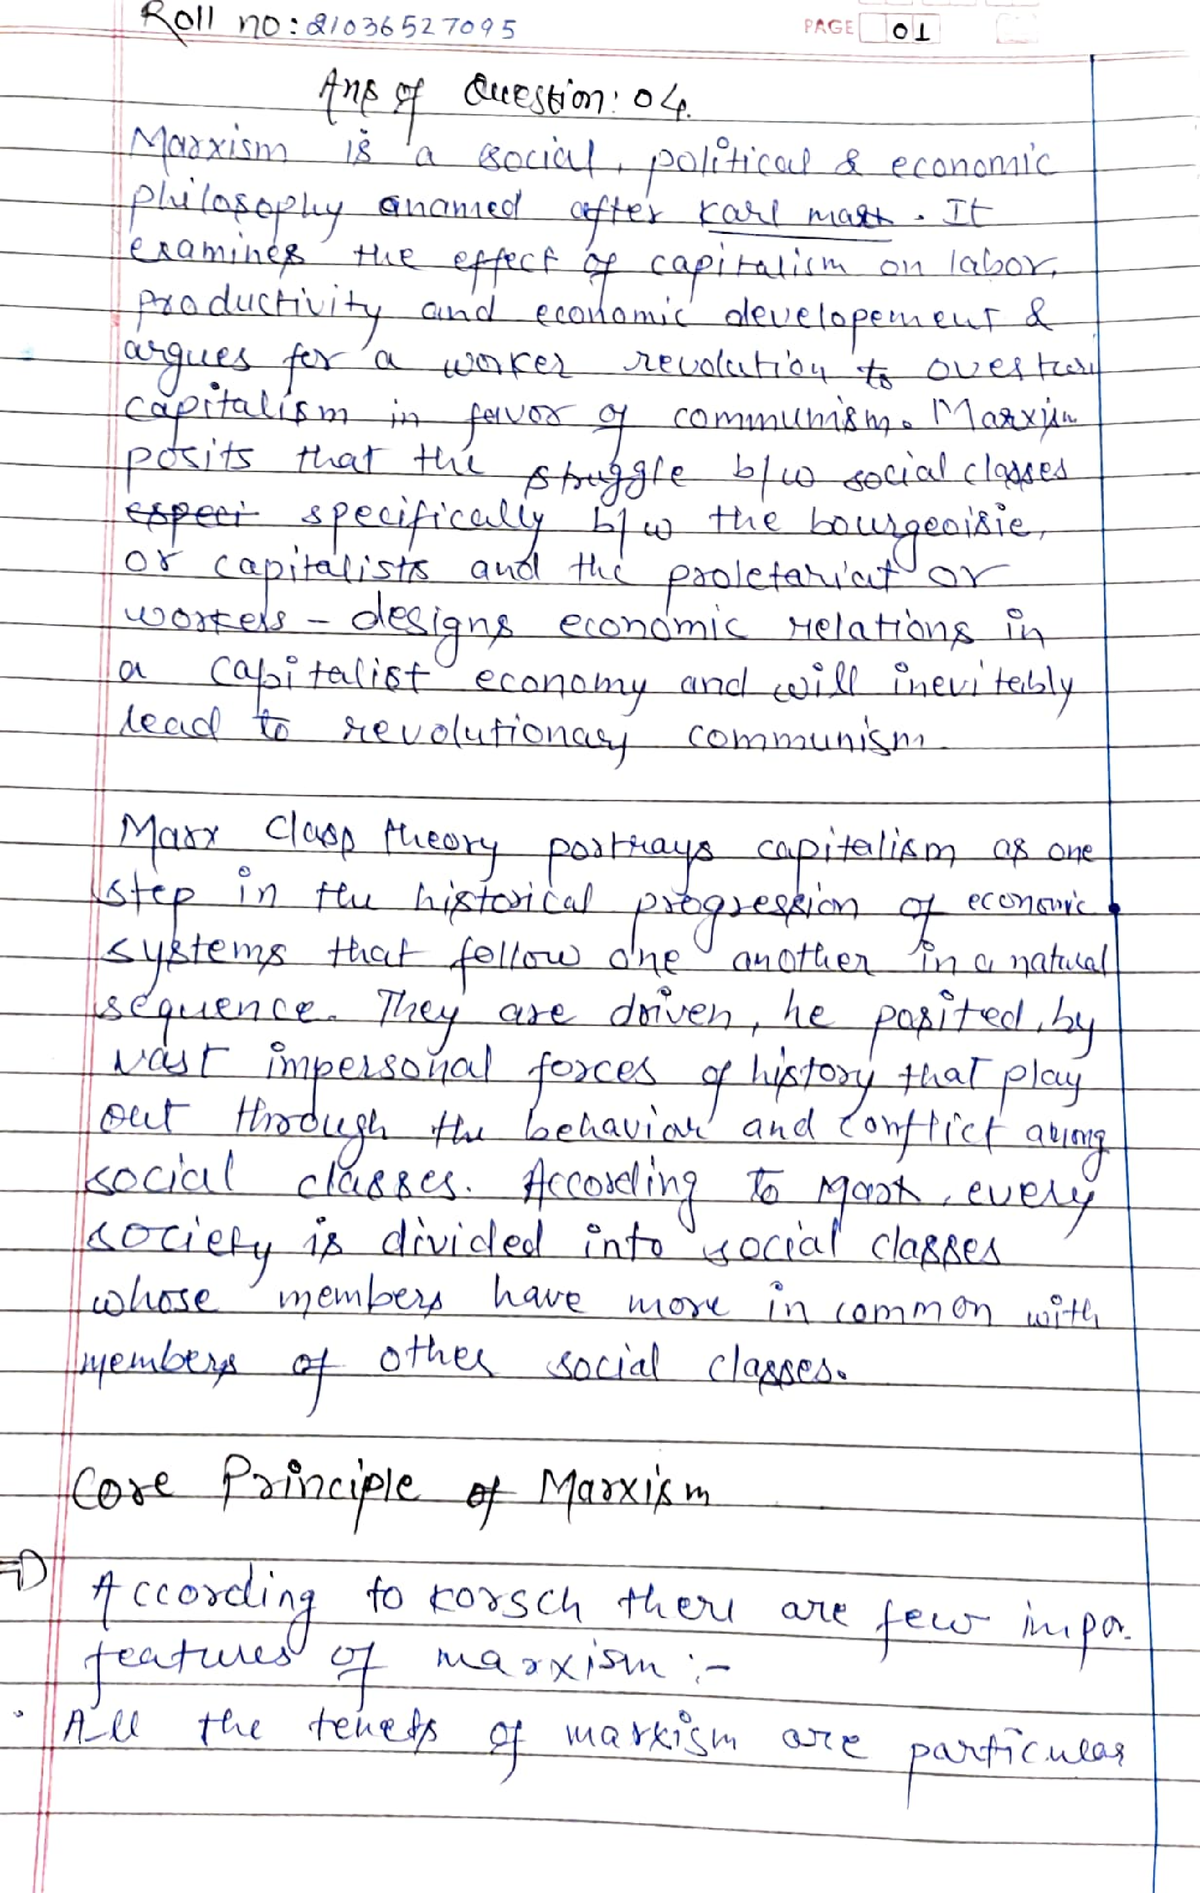 Roll no: 21036527095
PAGE 01
Ans of Question: 04.
Marxism is a social, political & economic
philosophy named after Karl Marx. It
examines the effect of capitalism on labor,
productivity and economic developement &
argues for a worker revolution to
capitalism in favor of communism. Marxism
posits that the struggle b/w social classes
especi specifically b/w the bourgeoisie,
or capitalists and the proletariat or
workers - designs economic relations in
a capitalist economy and will inevitably
lead to revolutionary communism.
Marx Class theory portrays capitalism as one
step in the historical progression of economic
systems that follow one another in a natural
sequence. They are driven, he posited, by
vast impersonal forces of history that play
out through the behavior and conflict among
social classes. According to Marx, every
society is divided into social classes
whose members have more in common with
members of other social classes.
Core Principle of Marxism
⇒ According to Korsch there are few impor.
features of marxism :-
• All the tenets of marxism are particular